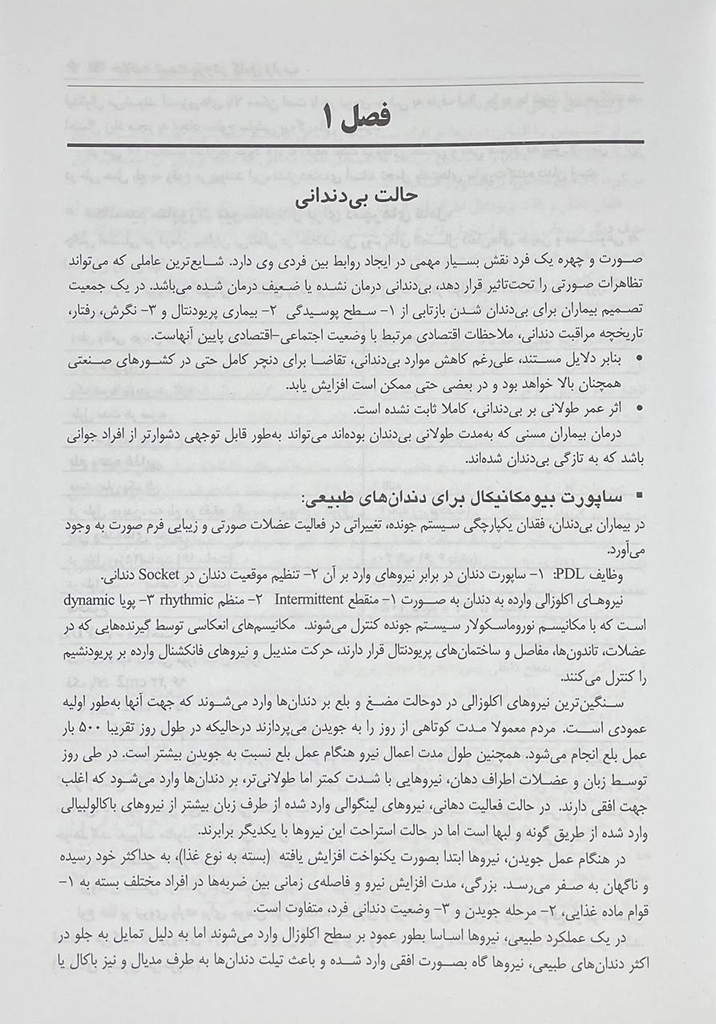 فصل ۱
حالت بی‌دندانی
صورت و چهره یک فرد نقش بسیار مهمی در ایجاد روابط بین فردی وی دارد. شایع‌ترین عاملی که می‌تواند
تظاهرات صورتی را تحت‌تاثیر قرار دهد، بی‌دندانی درمان نشده یا ضعیف درمان شده می‌باشد. در یک جمعیت
تصمیم بیماران برای بی‌دندان شدن بازتابی از ۱- سطح پوسیدگی ۲- بیماری پریودنتال و ۳- نگرش، رفتار،
تاریخچه مراقبت دندانی، ملاحظات اقتصادی مرتبط با وضعیت اجتماعی-اقتصادی پایین آنهاست.
• بنابر دلایل مستند، علی‌رغم کاهش موارد بی‌دندانی، تقاضا برای دنچر کامل حتی در کشورهای صنعتی
همچنان بالا خواهد بود و در بعضی حتی ممکن است افزایش یابد.
• اثر عمر طولانی بر بی‌دندانی، کاملا ثابت نشده است.
درمان بیماران مسنی که به‌مدت طولانی بی‌دندان بوده‌اند می‌تواند به‌طور قابل توجهی دشوارتر از افراد جوانی
باشد که به تازگی بی‌دندان شده‌اند.
▪ ساپورت بیومکانیکال برای دندان‌های طبیعی:
در بیماران بی‌دندان، فقدان یکپارچگی سیستم جونده، تغییراتی در فعالیت عضلات صورتی و زیبایی فرم صورت به وجود
می‌آورد.
وظایف PDL: ۱- ساپورت دندان در برابر نیروهای وارد بر آن ۲- تنظیم موقعیت دندان در Socket دندانی.
نیروهـای اکلوزالی وارده به دندان به صـورت ۱- منقطع Intermittent ۲- منظم rhythmic ۳- پویا dynamic
است که با مکانیسم نوروماسکولار سیستم جونده کنترل می‌شوند. مکانیسم‌های انعکاسی توسط گیرنده‌هایی که در
عضلات، تاندون‌ها، مفاصل و ساختمان‌های پریودنتال قرار دارند، حرکت مندیبل و نیروهای فانکشنال وارده بر پریودنشیم
را کنترل می‌کنند.
سـنگین‌ترین نیروهای اکلوزالی در دوحالت مضـغ و بلع بر دندان‌ها وارد می‌شوند که جهت آنها به‌طور اولیه
عمودی اسـت. مردم معمولا مدت کوتاهی از روز را به جویدن می‌پردازند درحالیکه در طول روز تقریبا ۵۰۰ بار
عمل بلع انجام می‌شود. همچنین طول مدت اعمال نیرو هنگام عمل بلع نسبت به جویدن بیشتر است. در طی روز
توسط زبان و عضـلات اطراف دهان، نیروهایی با شـدت کمتر اما طولانی‌تر، بر دندان‌ها وارد می‌شود که اغلب
جهت افقی دارند. در حالت فعالیت دهانی، نیروهای لینگوالی وارد شده از طرف زبان بیشتر از نیروهای باکالولبیالی
وارد شده از طریق گونه و لبها است اما در حالت استراحت این نیروها با یکدیگر برابرند.
در هنگام عمل جویدن، نیروها ابتدا بصورت یکنواخت افزایش یافته (بسته به نوع غذا)، به حداکثر خود رسیده
و ناگهان به صـفر می‌رسـد. بزرگی، مدت افزایش نیرو و فاصله‌ی زمانی بین ضربه‌ها در افراد مختلف بسته به ۱-
قوام ماده غذایی، ۲- مرحله جویدن و ۳- وضعیت دندانی فرد، متفاوت است.
در یک عملکرد طبیعی، نیروها اساسا بطور عمود بر سطح اکلوزال وارد می‌شوند اما به دلیل تمایل به جلو در
اکثر دندان‌های طبیعی، نیروها گاه بصورت افقی وارد شده و باعث تیلت دندان‌ها به طرف مدیال و نیز باکال یا